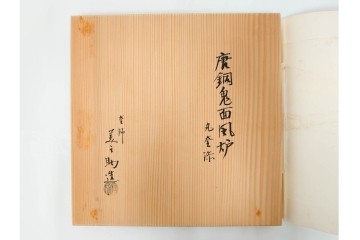 唐銅鬼面風炉
丸釜添
釜師
美之助造